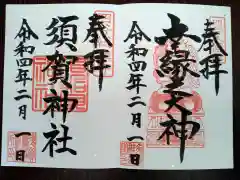 奉拝
縁天神
令和四年二月一日
奉拝
須賀神社
令和四年二月一日